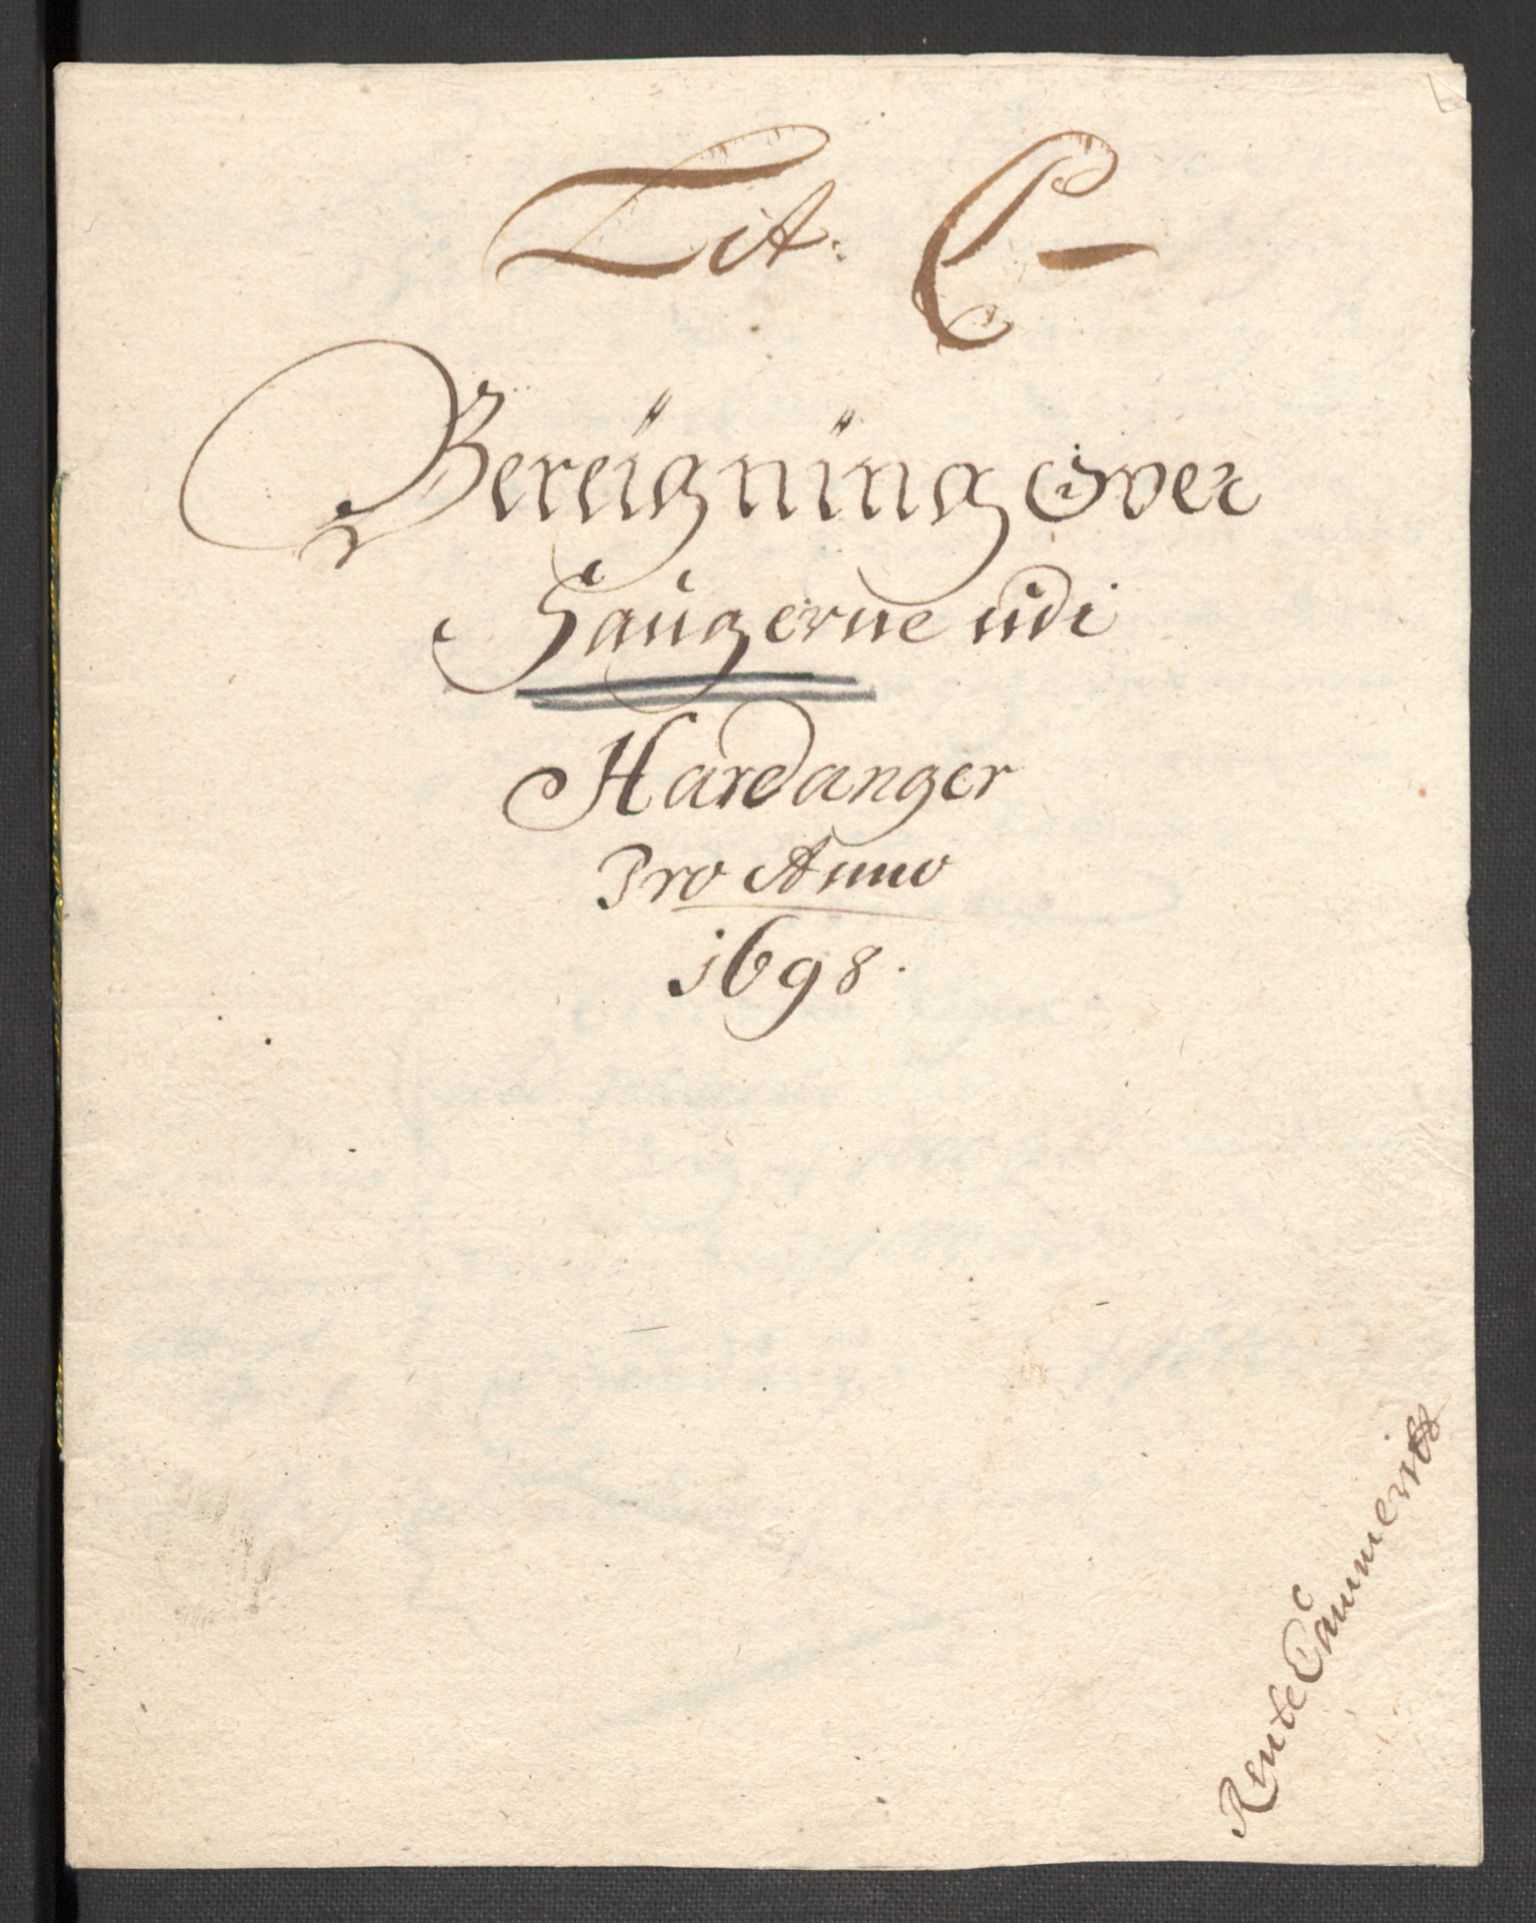 Lit. C –
Bereigning over
Saugerne udi
Hardanger
Pro Anno
1698.
Rente Cammerit